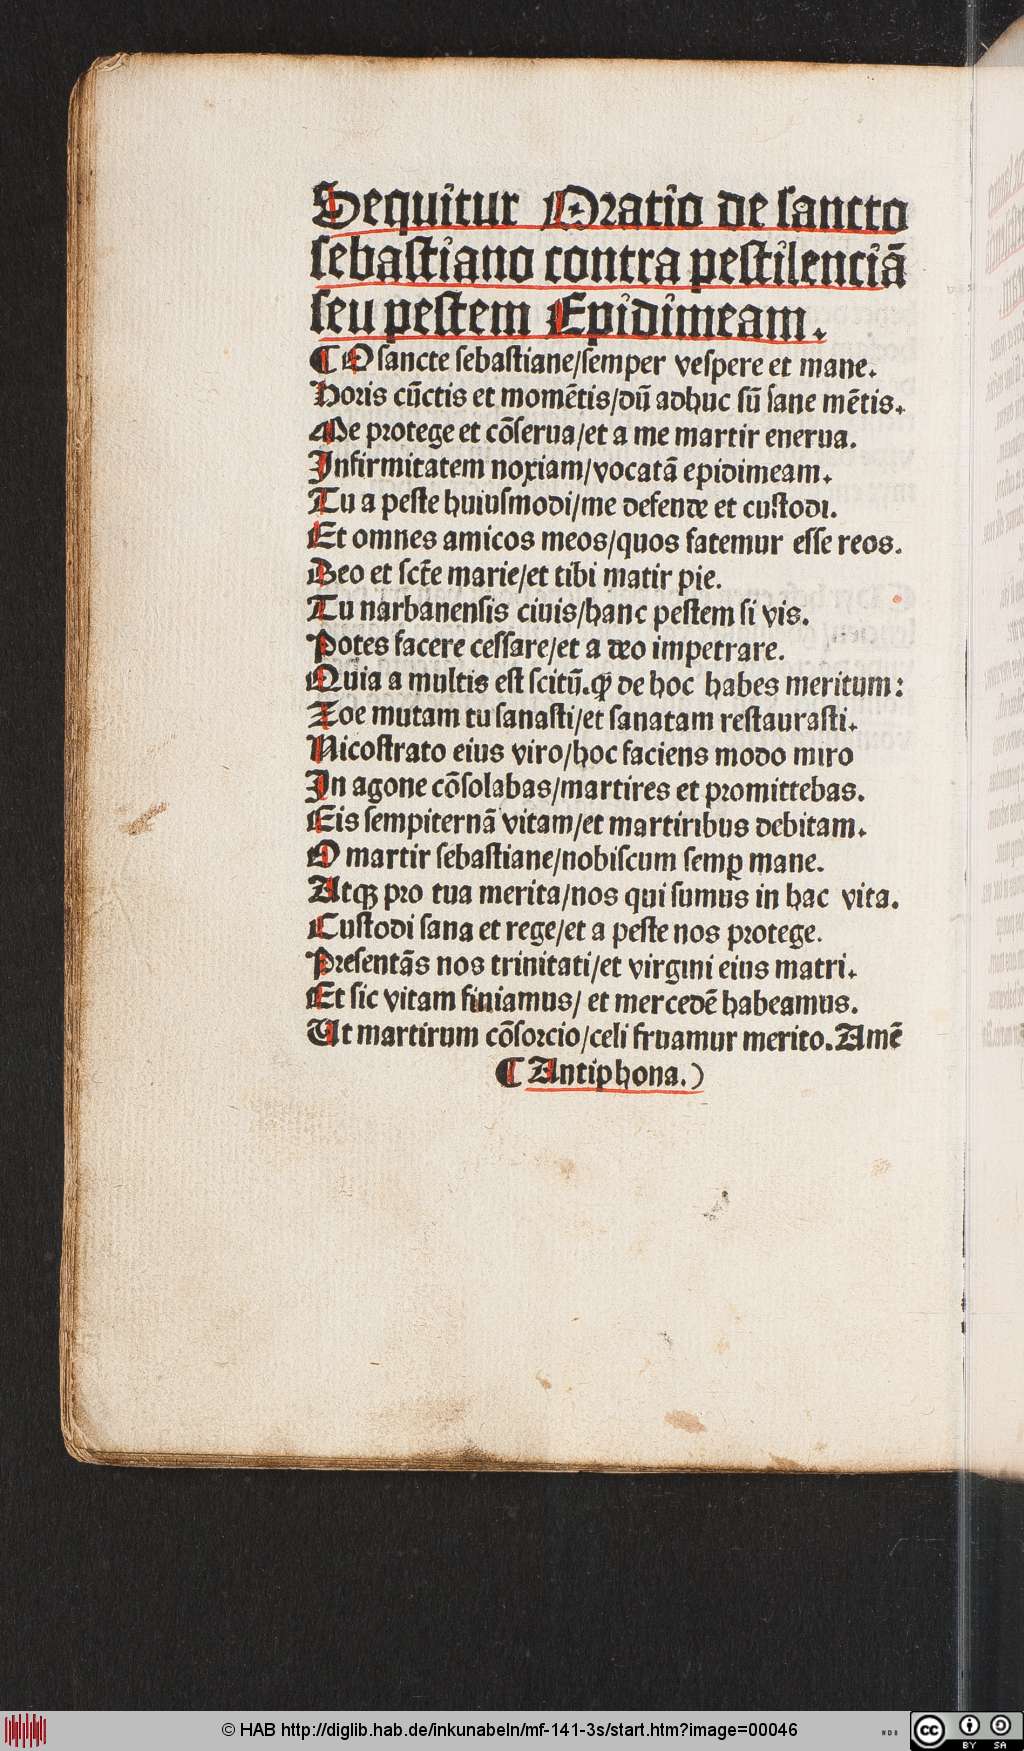 Sequitur Oratio de sancto
sebastiano contra pestilenciā
seu pestem Epidimeam.
¶ O sancte sebastiane/semper vespere et mane.
Horis cūctis et momētis/dū adhuc sū sane mētis.
Me protege et cōserua/et a me martir enerua.
Infirmitatem noxiam/vocatā epidimeam.
Tu a peste huiusmodi/me defende et custodi.
Et omnes amicos meos/quos fatemur esse reos.
Deo et scte̅ marie/et tibi matir pie.
Tu narbanensis ciuis/hanc pestem si vis.
Potes facere cessare/et a deo impetrare.
Quia a multis est scitū.ꝙ de hoc habes meritum:
Zoe mutam tu sanasti/et sanatam restaurasti.
Nicostrato eius viro/hoc faciens modo miro
In agone cōsolabas/martires et promittebas.
Eis sempiternā vitam/et martiribus debitam.
O martir sebastiane/nobiscum semꝑ mane.
Atqꝫ pro tua merita/nos qui sumus in hac vita.
Custodi sana et rege/et a peste nos protege.
Presentās nos trinitati/et virgini eius matri.
Et sic vitam finiamus/ et mercedē habeamus.
Ut martirum cōsorcio/celi fruamur merito. Amē
¶ Antiphona.)
© HAB http://diglib.hab.de/inkunabeln/mf-141-3s/start.htm?image=00046
CC BY SA